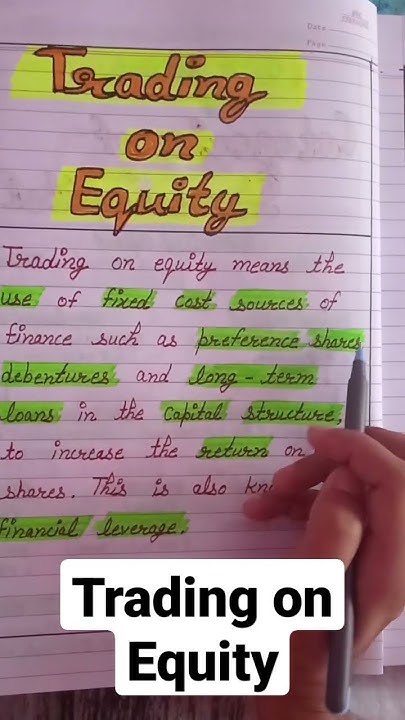 Date
Page
Trading
on
Equity
Trading on equity means the
use of fixed cost sources of
finance such as preference shares
debentures and long-term
loans in the capital structure,
to increase the return on
shares. This is also kn
financial leverage.
Trading on
Equity